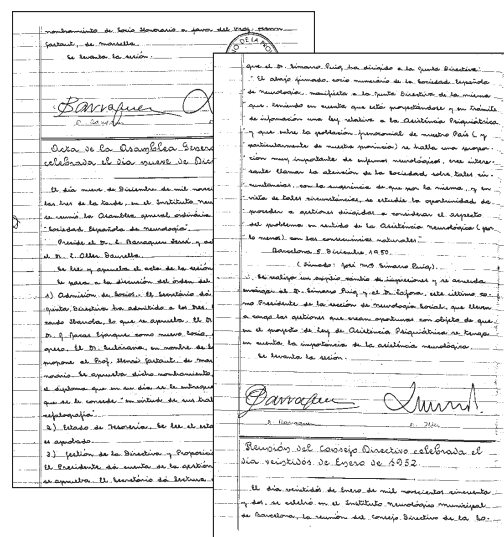 nombramiento de Socio Honorario a favor del Prof. Henri
Gastaut, de Marsella.
Se levanta la sesión.
Barraquer
D. Barraquer
Acta de la Asamblea Gener
celebrada el día nueve de Dic
El día nueve de Diciembre de mil novec
las tres de la tarde, en el Instituto Neu
se reunió la Asamblea general ordinaria
"Sociedad Española de Neurología".
Preside el Dr. L. Barraquer Ferré, y ac
el Dr. C. Oller Daurella.
Se lee y aprueba el acta de la sesión
Se pasa a la discusión del orden del
1) Admisión de Socios. El Secretario dá
Junta Directiva ha admitido a los Dres.
lo que se aprueba. El Dr
como nuevo Socio,
en nombre de l
propone al Prof. Henri Gastaut, de Mar
norario. Se aprueba dicho nombramiento,
el diploma que en su día se le entregue
que se le concede "en virtud de sus trab
cefalografía".
2) Estado de Tesorería. Se lee el esta
es aprobado.
3) Gestión de la Directiva y Proposicio
El Presidente dá cuenta de la gestión
se aprueba. El Secretario dá lectura
que el Dr. Simarro Puig, ha dirigido a la Junta Directiva:
"El abajo firmado, socio numerario de la Sociedad Española
de Neurología, manifiesta a la Junta Directiva de la misma
que, teniendo en cuenta que está proyectándose y en trámite
de información una ley relativa a la Asistencia Psiquiátrica
y que entre la población manicomial de nuestro País (y
particularmente de nuestra provincia) se halla una propor-
ción muy importante de enfermos neurológicos, cree intere-
sante llamar la atención de la Sociedad sobre tales cir-
cunstancias, con la sugerencia de que por la misma, y en
vista de tales circunstancias, se estudie la oportunidad de
proceder a gestiones dirigidas a considerar el aspecto
del problema en sentido de la Asistencia Neurológica (por
lo menos) con las consecuencias naturales".
Barcelona 5 Diciembre, 1950.
(Firmado: José Mª Simarro Puig).
Se realiza un amplio cambio de impresiones y se acuerda
encargar al Dr. Simarro Puig, y al Dr. este último co-
mo Presidente de la Sección de Neurología Social, que lleven
a cabo las gestiones que crean oportunas con objeto de que
en el proyecto de Ley de Asistencia Psiquiátrica se tenga
en cuenta la importancia de la asistencia neurológica.
Se levanta la sesión.
Barraquer
D. Barraquer D. Oller
Reunión del Consejo Directivo celebrada el
día veintidós de Enero de 1952.
El día veintidós de Enero de mil novecientos cincuenta
y dos, se celebró en el Instituto Neurológico Municipal
de Barcelona, la reunión del Consejo Directivo de la So-